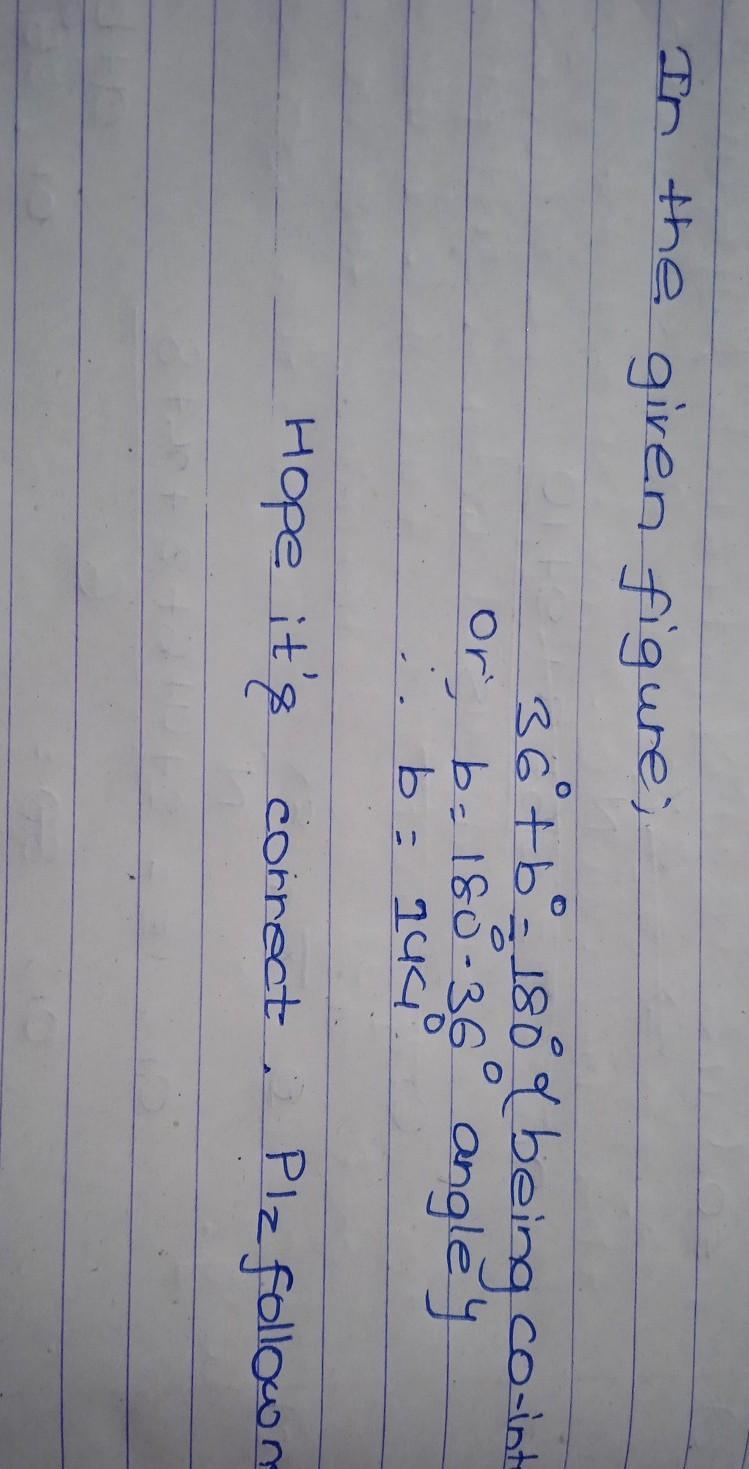 In the given figure;
36° + b° = 180° {being co-int
or, b = 180° - 36° angle}
∴ b = 144°
Hope it's correct. Plz follow m